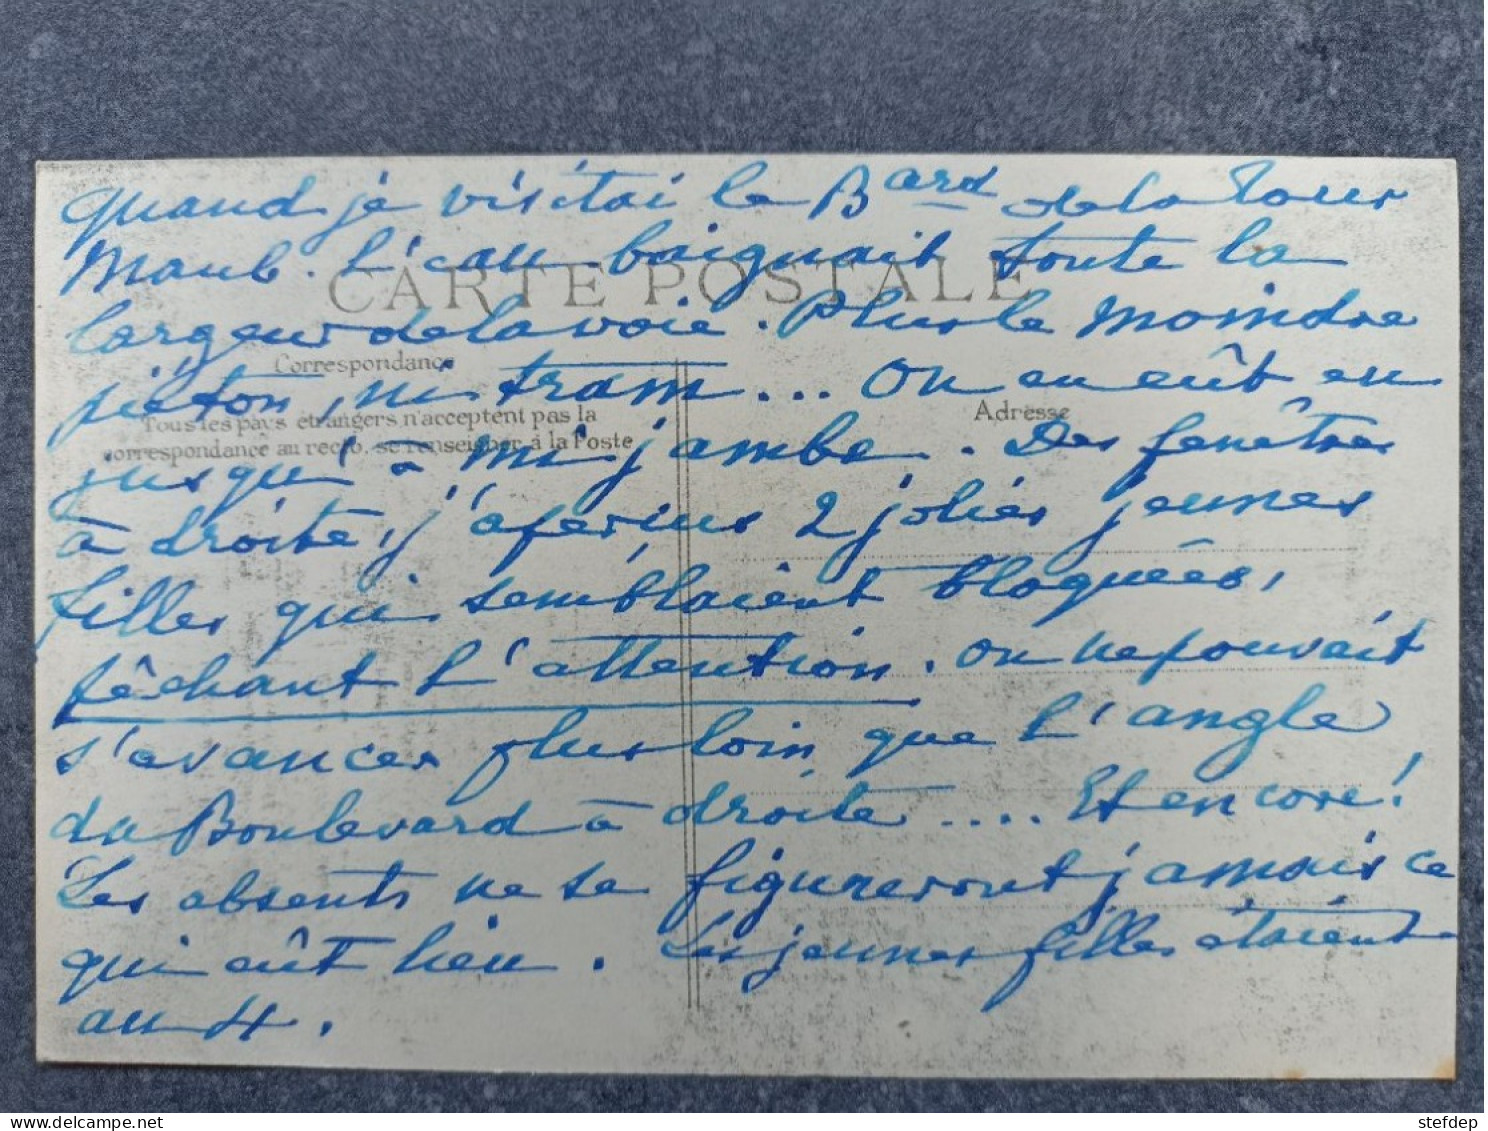 quand je visitai le Bard de la Tour
Maub. l'eau baignait toute la
CARTE POSTALE
largeur de la voie. Plus le moindre
Correspondance
piéton, ni tram... On en eût eu
Adresse
Tous les pays étrangers n'acceptent pas la
correspondance au recto, se renseigner à la Poste
jusqu'à mi jambe. Des fenêtres
à droite, j'aperçus 2 jolies jeunes
filles qui semblaient bloquées,
pêchant l'attention. On ne pouvait
s'avancer plus loin que l'angle
du Boulevard à droite.... Et encore!
Les absents ne se figureront jamais ce
qui eût lieu. Les jeunes filles étaient
au 4.
stefdep